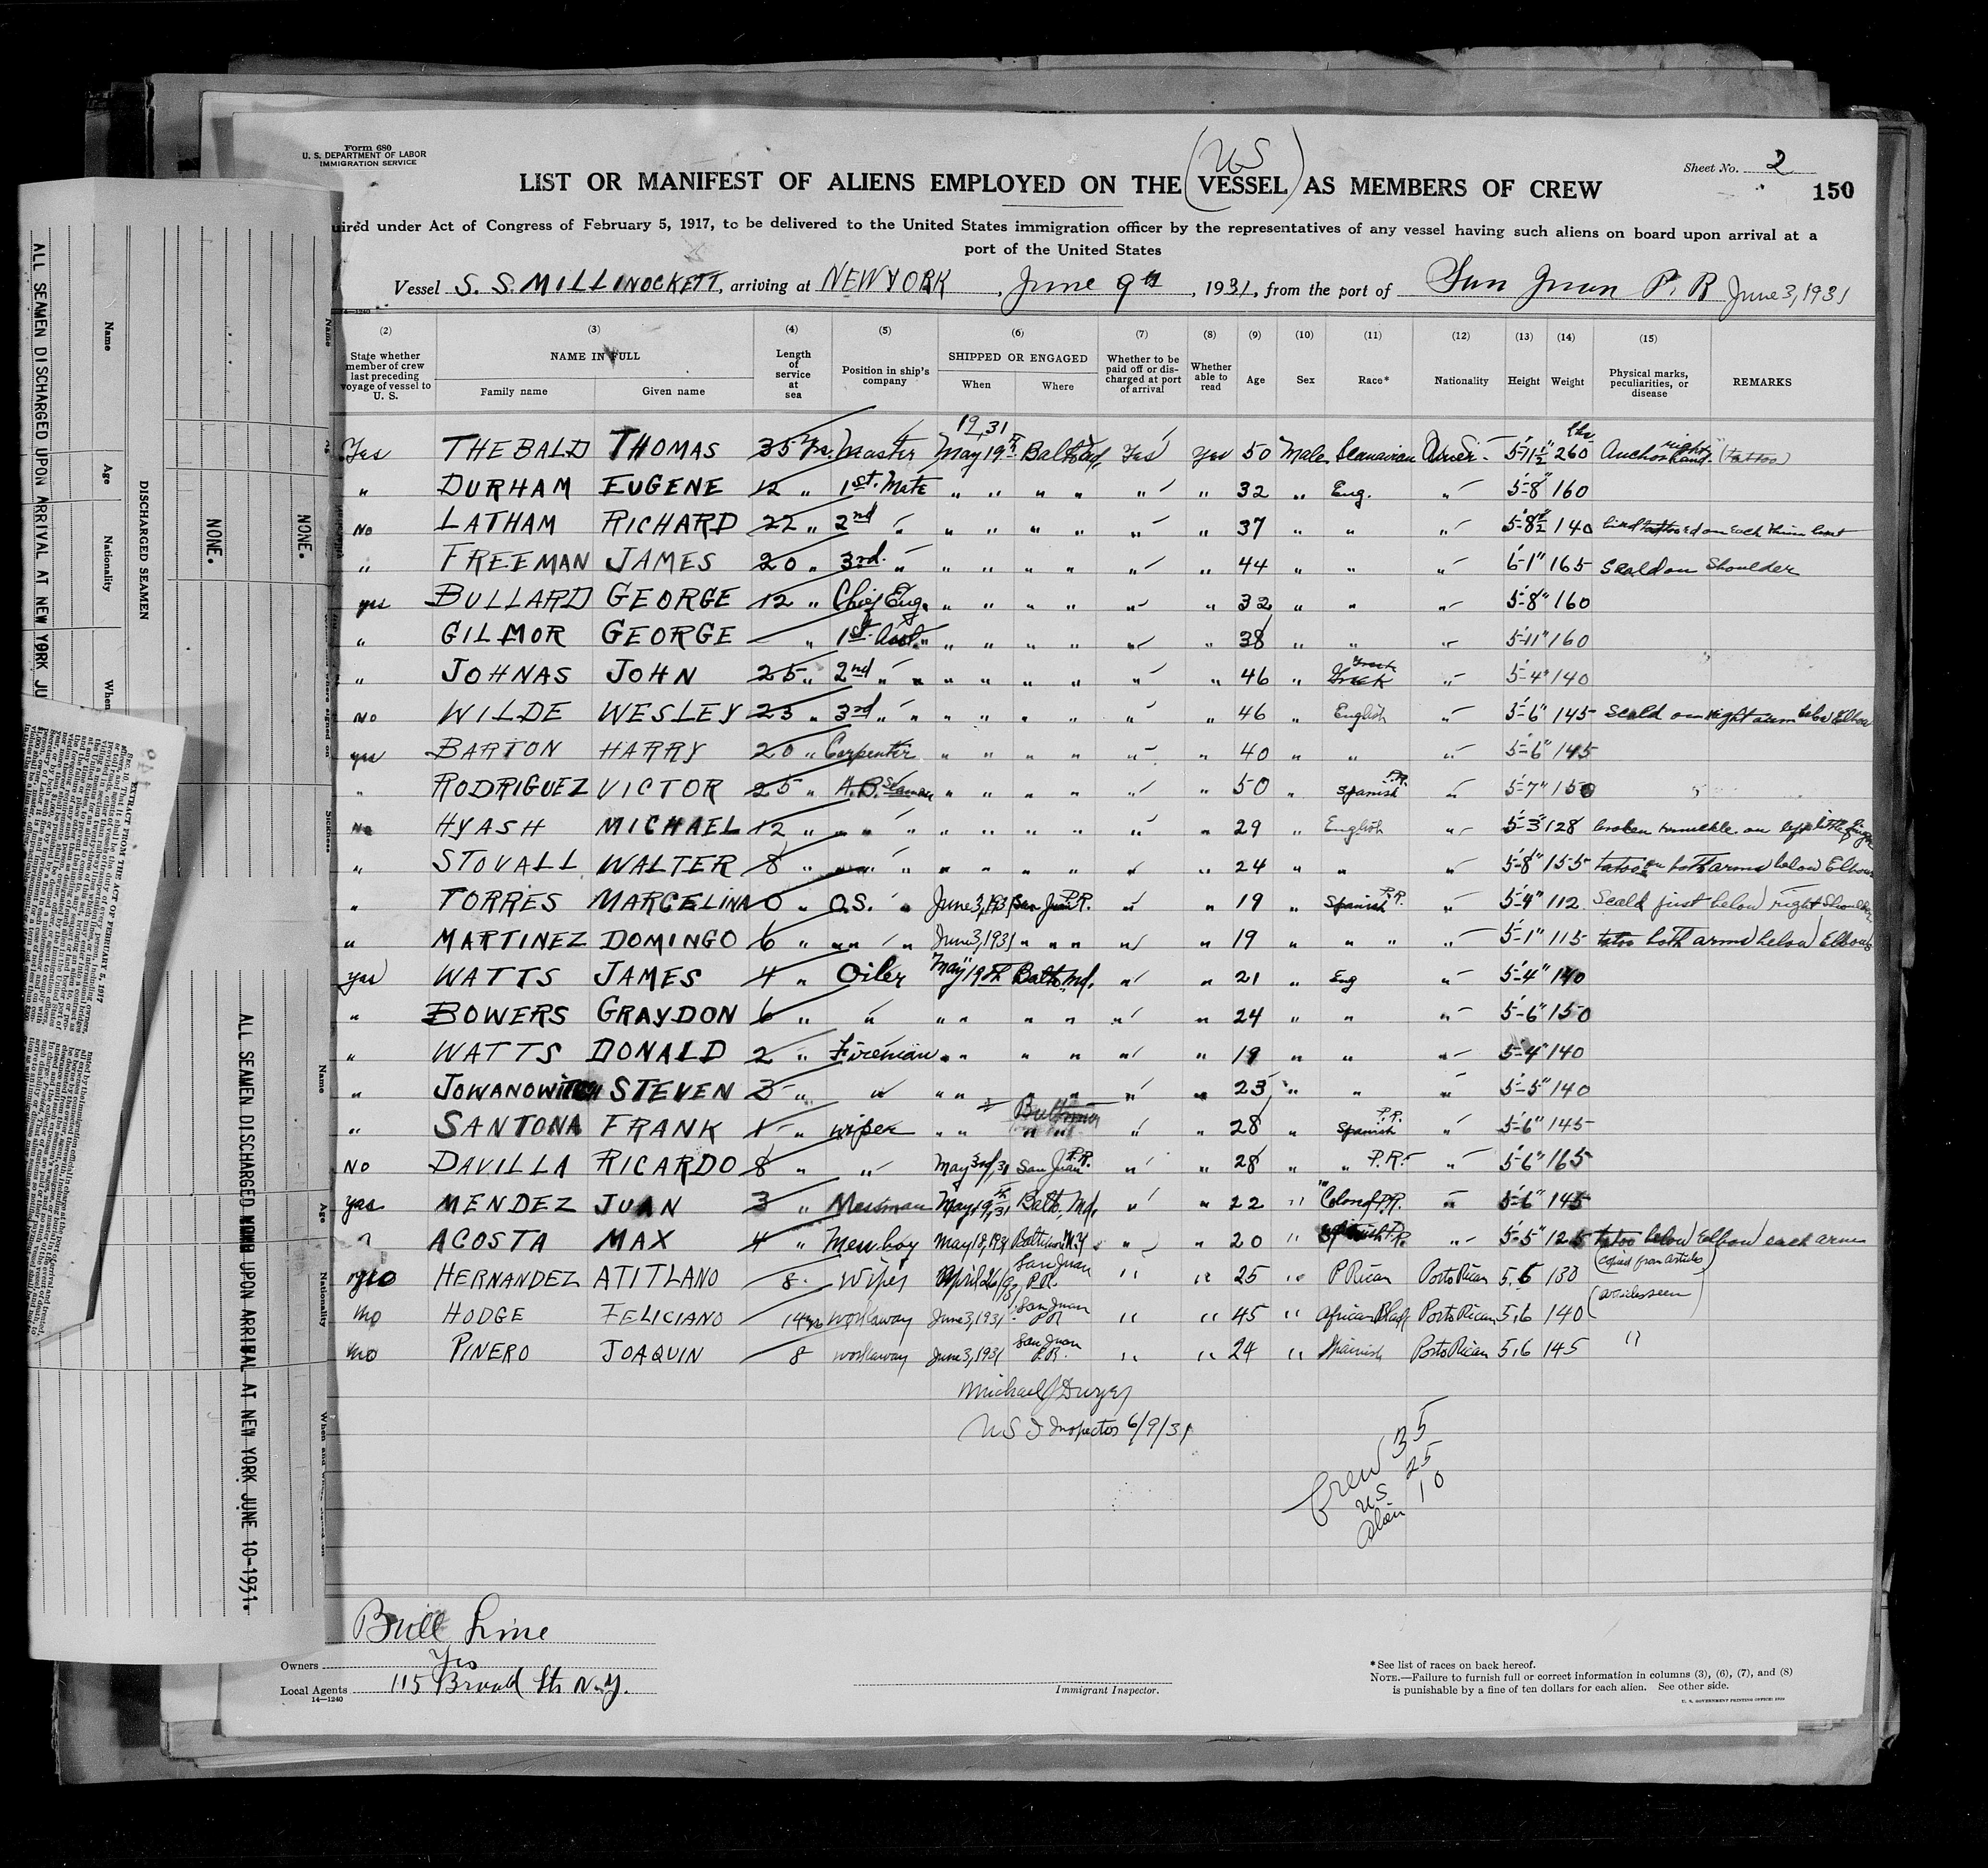 Form 680
U. S. DEPARTMENT OF LABOR
IMMIGRATION SERVICE
Sheet No. 2
150
(US)
LIST OR MANIFEST OF ALIENS EMPLOYED ON THE VESSEL AS MEMBERS OF CREW
uired under Act of Congress of February 5, 1917, to be delivered to the United States immigration officer by the representatives of any vessel having such aliens on board upon arrival at a
port of the United States
Vessel S. S. MILLINOCKETT, arriving at NEW YORK, June 9th, 1931, from the port of San Juan P. R June 3, 1931
14—1240
(2) (3) (4) (5) (6) (7) (8) (9) (10) (11) (12) (13) (14) (15)
State whether member of crew last preceding voyage of vessel to U. S.
NAME IN FULL
Family name Given name
Length of service at sea
Position in ship's company
SHIPPED OR ENGAGED
When Where
Whether to be paid off or discharged at port of arrival
Whether able to read
Age Sex Race* Nationality Height Weight
Physical marks, peculiarities, or disease
REMARKS
1931
Yes THEBALD THOMAS 35 Yrs. Master May 19th Balto Md. Yes yes 50 Male Scanavian Amer. 5'-11½" 260 lbs Anchor right hand (tattoo)
" DURHAM EUGENE 12 " 1st. Mate " " " " " " 32 " Eng. " 5'-8" 160
No LATHAM RICHARD 22 " 2nd " " " " " " " 37 " " " 5'-8½" 140
" FREEMAN JAMES 20 " 3rd. " " " " " " " 44 " " " 6'-1" 165 Scald on Shoulder
yes BULLARD GEORGE 12 " Chief Eng. " " " " " " 32 " " " 5'-8" 160
" GILMOR GEORGE " 1st. Asst. " " " " " " " 38 " " " 5'-11" 160
" JOHNAS JOHN 25 " 2nd " " " " " " " " 46 " Greek " 5'-4" 140
No WILDE WESLEY 23 " 3rd " " " " " " " " 46 " English " 5'-6" 145 Scald on right arm below Elbow
yes BARTON HARRY 20 " Carpenter " " " " " " 40 " " " 5'-6" 145
" RODRIGUEZ VICTOR 25 " A.B. Seaman " " " " " " 50 " Spanish P.R. " 5'-7" 150
No HYASH MICHAEL 12 " " " " " " " " " " 29 " English " 5'-3" 128 broken knuckle on left little finger
" STOVALL WALTER 8 " " " " " " " " " " 24 " " " 5'-8" 155 tatoo on both arms below Elbow
" TORRES MARCELINA 0 " O.S. " June 3, 1931 San Juan P.R. " " 19 " Spanish P.R. " 5'-4" 112 Scald just below right Shoulder
" MARTINEZ DOMINGO 6 " " " " June 3, 1931 " " " " " 19 " " " " 5'-1" 115 tatoo both arms below Elbows
yes WATTS JAMES 4 " Oiler May 19th Balto. Md. " " 21 " Eng " 5'-4" 140
" BOWERS GRAYDON 6 " " " " " " " " 24 " " " 5'-6" 150
" WATTS DONALD 2 " Fireman " " " " " " 19 " " " 5'-4" 140
" JOWANOWITCH STEVEN 3 " " " " " " " " 23 " " " 5'-5" 140
" SANTONA FRANK 1 " wiper " " " " " " 28 " Spanish P.R. " 5'-6" 145
NO DAVILLA RICARDO 8 " " May 3rd, 31 San Juan P.R. " " 28 " " P.R. " 5'-6" 165
yes MENDEZ JUAN 3 " Messman May 19th, 31 Balto, Md, " " 22 " Colored P.R. " 5'-6" 145
" ACOSTA MAX 4 " Mess boy May 18, 1931 Baltimore " " 20 " Spanish P.R. " 5'-5" 125 tatoo below Elbow each arm
no HERNANDEZ ATITLANO 8 Wiper April 26/31 San Juan P.R. " " 25 " P Rican Porto Rican 5,6 130 (Copied from articles)
no HODGE FELICIANO 14 yrs workaway June 3, 1931 San Juan PR " " 45 " African Black Porto Rican 5,6 140 (articles seen)
no PINERO JOAQUIN 8 workaway June 3, 1931 San Juan P.R. " " 24 " Spanish Porto Rican 5,6 145 "
Michael J Dwyer
U S I Inspector 6/9/31
Crew 35
US 25
Alien 10
Bull Line
Owners Yes
Local Agents 115 Broad St N.Y.
14—1240
Immigrant Inspector.
*See list of races on back hereof.
NOTE.—Failure to furnish full or correct information in columns (3), (6), (7), and (8)
is punishable by a fine of ten dollars for each alien. See other side.
U. S. GOVERNMENT PRINTING OFFICE: 1930
ALL SEAMEN DISCHARGED UPON ARRIVAL AT NEW YORK JU
Name
Age
Nationality
When
DISCHARGED SEAMEN
NONE.
NONE.
Name
Sickness
EXTRACT FROM THE ACT OF FEBRUARY 5, 1917
ALL SEAMEN DISCHARGED UPON ARRIVAL AT NEW YORK JUNE 10-1931.
Name
Age
Nationality